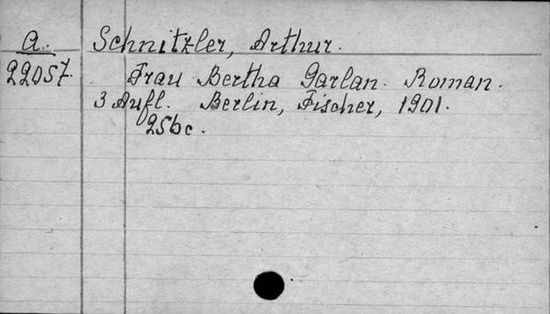 A. Schnitzler, Arthur.
22057. Frau Bertha Garlan. Roman.
3 Aufl. Berlin, Fischer, 1901.
256c.